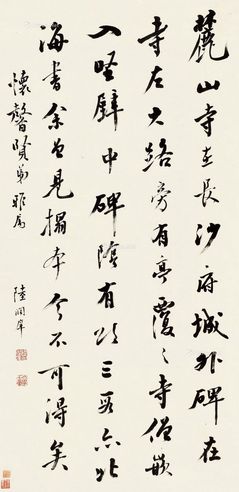 麓山寺在長沙府城外碑在
寺左大路旁有亭覆之寺僧嵌
入壁中碑陰有 三 亦北
海書余曾見搨本今不可得矣
懷馨賢弟雅屬
陸潤庠